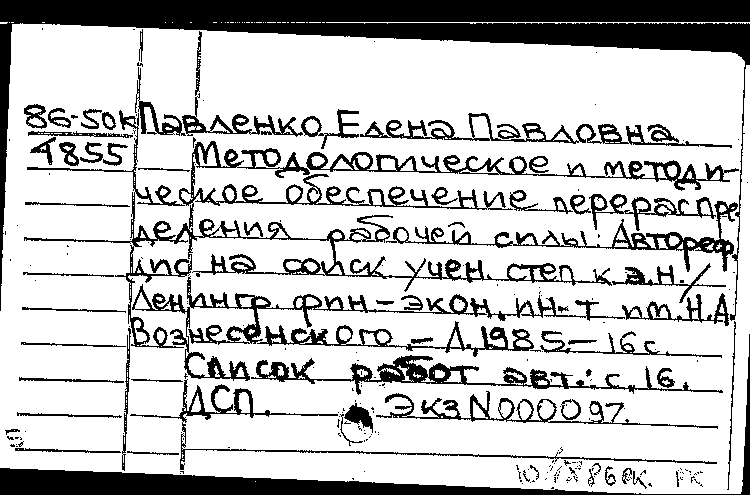 86-50к Павленко, Елена Павловна.
4855 Методологическое и методи-
ческое обеспечение перераспре-
деления рабочей силы: Автореф.
дис. на соиск. учен. степ к.э.н. /
Ленингр. фин-экон. ин-т им. Н.А.
Вознесенского. - Л., 1985. - 16 с.
Список работ авт.: с. 16.
ДСП. Экз N000097.